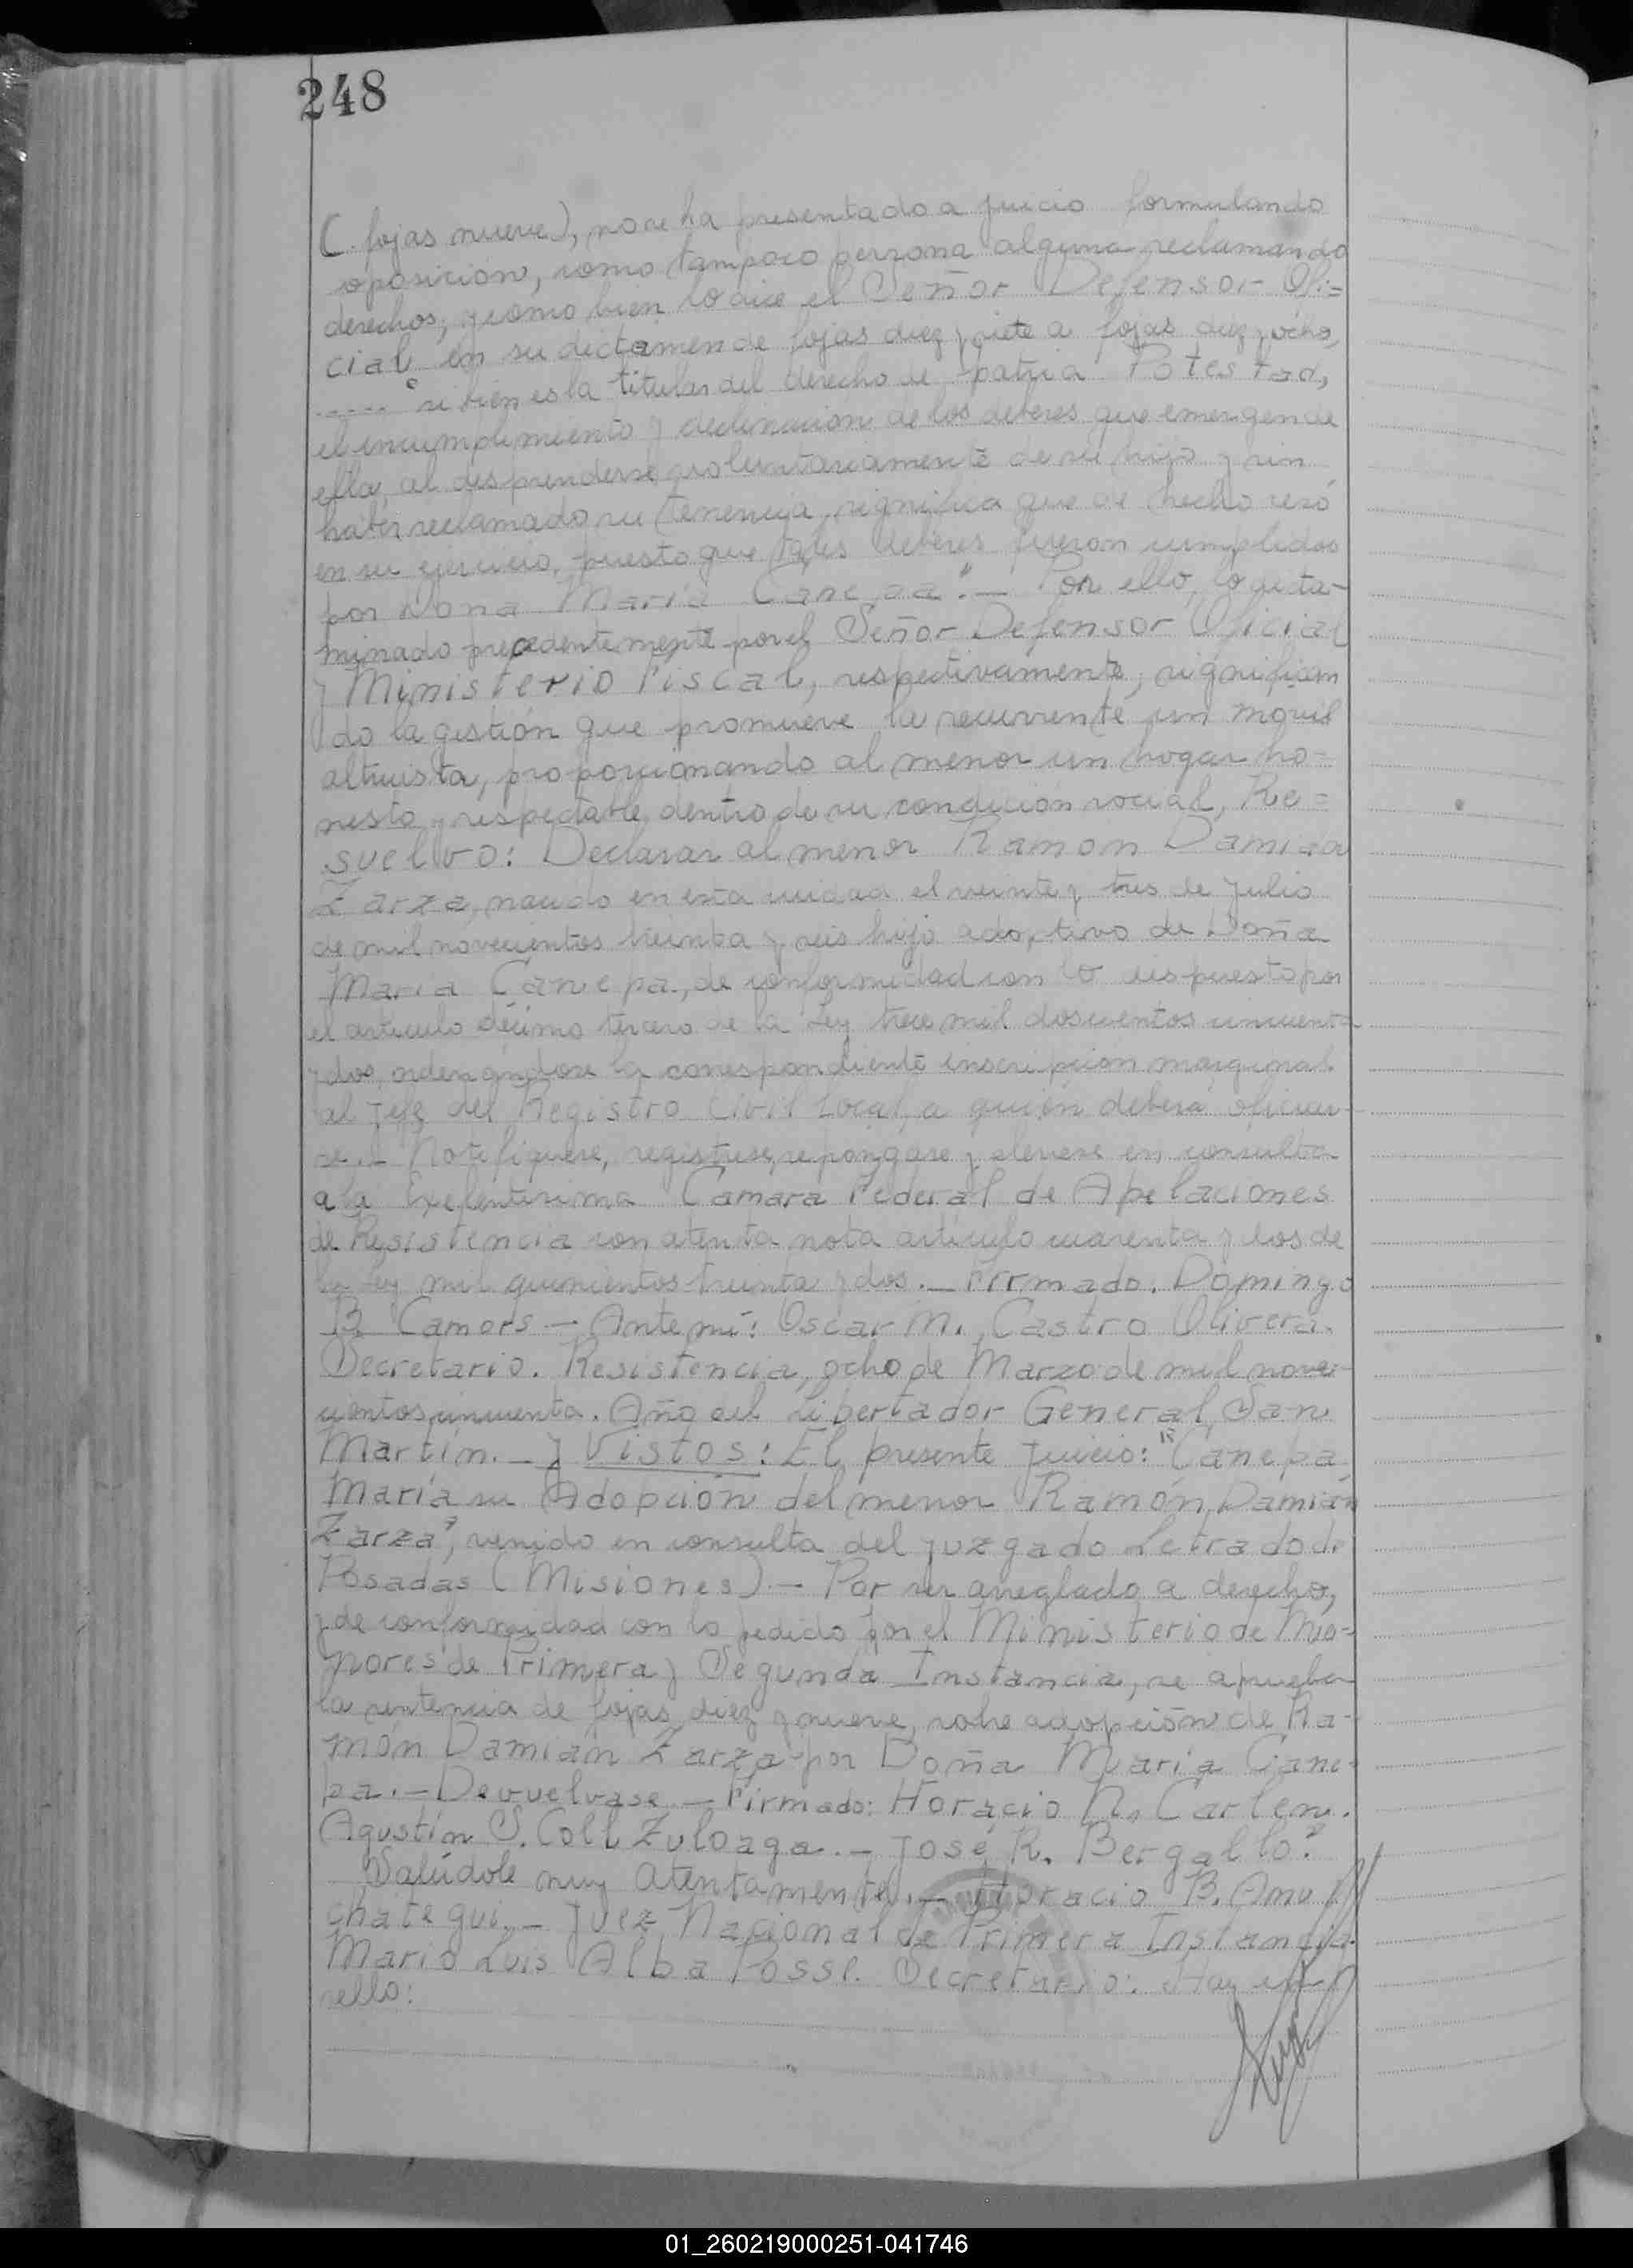 248
(fojas nueve), no se ha presentado a juicio formulando
oposición, como tampoco persona alguna reclamando
derechos; y como bien lo dice el Señor Defensor Ofi=
cial en su dictamen de fojas diez y siete a fojas diez y ocho,
..... "si bien es la titular del derecho de patria Potestad,
el incumplimiento y declinación de los deberes que emergen de
ella, al desprenderse voluntariamente de su hijo y sin
haber reclamado su tenencia, significa que de hecho cesó
en su ejercicio, puesto que tales deberes fueron cumplidos
por Doña María Canepa".— Por ello, lo dicta-
minado precedentemente por el Señor Defensor Oficial
y Ministerio Fiscal, respectivamente, significan
do la gestión que promueve la recurrente un movil
altruista, proporcionando al menor un hogar ho-
nesto y respectable, dentro de su condición social, Re=
suelvo: Declarar al menor Ramon Damian
Zarza, nacido en esta ciudad el veinte y tres de Julio
de mil novecientos treinta y seis hijo adoptivo de Doña
María Canepa, de conformidad con lo dispuesto por
el artículo décimo tercero de la Ley trece mil doscientos cincuenta
y dos, ordenándose la correspondiente inscripción marginal
al Jefe del Registro Civil Local, a quien deberá oficiar-
se.— Notifiquese, registrese, repóngase y elevese en consulta
a la Exelentisima Camara Federal de Apelaciones
de Resistencia con atenta nota artículo cuarenta y dos de
la Ley mil quinientos treinta y dos.— Firmado. Domingo
B Camors — Ante mí: Oscar M. Castro Olivera.
Secretario. Resistencia, ocho de Marzo de mil nove-
cientos cincuenta. Año del Libertador General San
Martín.— y Vistos: El presente Juicio: "Canepa
María su Adopción del menor Ramón Damián
Zarza", venido en consulta del Juzgado Letrado de
Posadas (Misiones).— Por ser arreglado a derecho,
y de conformidad con lo pedido por el Ministerio de Me-
nores de Primera y Segunda Instancia, se aprueba
la sentencia de fojas diez y nueve, sobre adopción de Ra-
món Damián Zarza por Doña María Cane-
pa.— Devuelvase.— Firmado: Horacio R. Carlen.
Agustín S. Coll Zuloaga.— José R. Bergallo."
Salúdole muy Atentamente.— Horacio B. Amu
chategui.— Juez Nacional de Primera Instancia.
Mario Luis Alba Posse. Secretario: Hay un
sello:
01_260219000251-041746